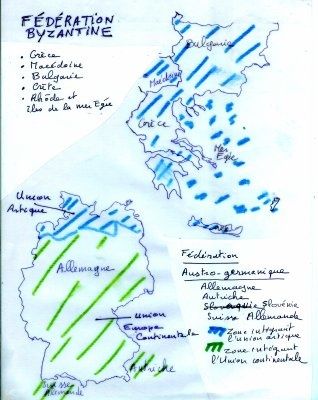 FÉDÉRATION
BYZANTINE
• Grèce
• Macédoine
• Bulgarie
• Crête
• Rhôde et
îles de la mer Egée
Bulgarie
Macédoine
Grèce
Mer
Egée
Union
Artique
Allemagne
Union
Europa
Continentale
Suisse
Allemande
Autriche
Fédération
Austro-germanique
Allemagne
Autriche
Slovénie
Suisse Allemande
Zone intégrant
l'union artique
Zone intégrant
l'Union continentale